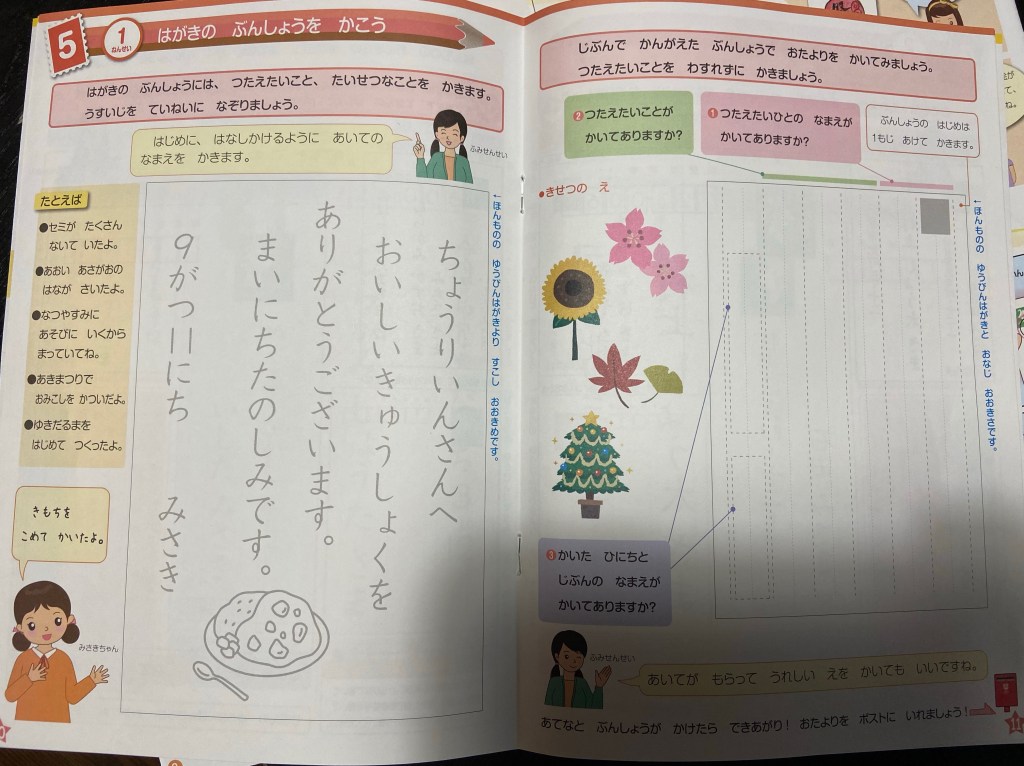 5
1
ねんせい
はがきの ぶんしょうを かこう
はがきの ぶんしょうには、 つたえたいこと、 たいせつなことを かきます。
うすいじを ていねいに なぞりましょう。
はじめに、 はなしかけるように あいての
なまえを かきます。
ふみせんせい
たとえば
●セミが たくさん
ないて いたよ。
●あおい あさがおの
はなが さいたよ。
●なつやすみに
あそびに いくから
まっていてね。
●あきまつりで
おみこしを かついだよ。
●ゆきだるまを
はじめて つくったよ。
きもちを
こめて かいたよ。
みさきちゃん
↓ほんものの ゆうびんはがきより すこし おおきめです。
ちょうりいんさんへ
おいしいきゅうしょくを
ありがとうございます。
まいにちたのしみです。
9がつ11にち みさき
じぶんで かんがえた ぶんしょうで おたよりを かいてみましょう。
つたえたいことを わすれずに かきましょう。
ぶんしょうの はじめは
1もじ あけて かきます。
1 つたえたいひとの なまえが
かいてありますか?
2 つたえたいことが
かいてありますか?
●きせつの え
↓ほんものの ゆうびんはがきと おなじ おおきさです。
3 かいた ひにちと
じぶんの なまえが
かいてありますか?
ふみせんせい
あいてが もらって うれしい えを かいても いいですね。
あてなと ぶんしょうが かけたら できあがり! おたよりを ポストに いれましょう!
11